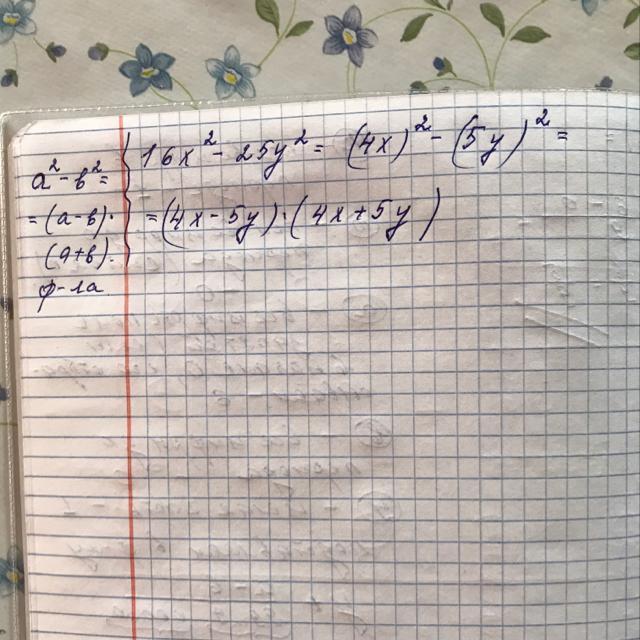 a² - в² =
= (а - в) ·
(а + в).
ф-ла
16x² - 25y² = (4x)² - (5y)² =
= (4x - 5y) · (4x + 5y)